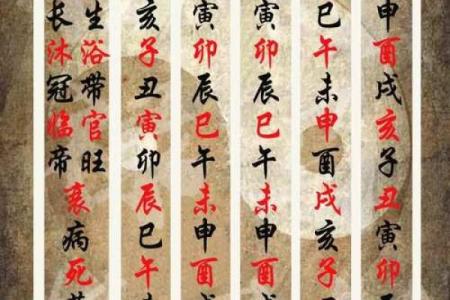 长生沐浴冠带临官帝旺衰病死
亥子丑寅卯辰巳午
寅卯辰巳午未申酉
寅卯辰巳午未申酉
巳午未申酉戌亥子
申酉戌亥子丑寅卯